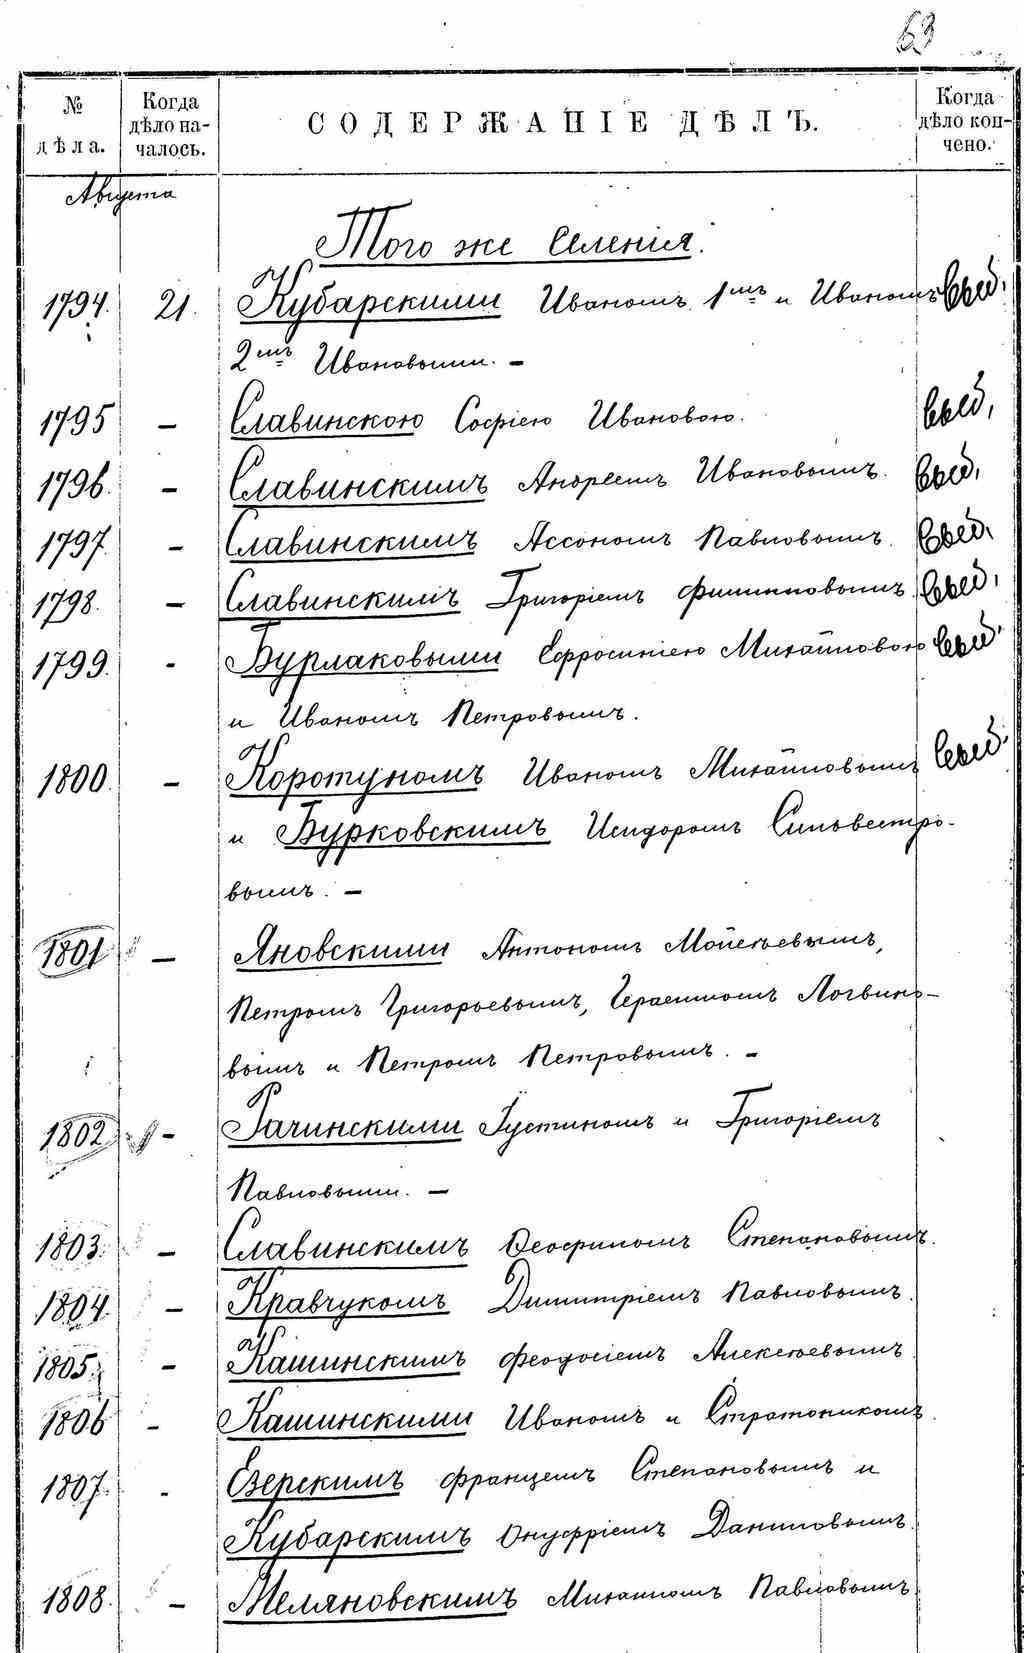 63
№ дѣла. Когда дѣло началось. СОДЕРЖАНІЕ ДѢЛЪ. Когда дѣло кончено.
Августа
Того же Селенія.
1794. 21. Кубарскими Иваномъ 1мъ и Иваномъ
2мъ Ивановыми. –
1795 – Славинскою Софіею Ивановою.
1796. – Славинскимъ Андреемъ Ивановымъ.
1797. – Славинскимъ Ассономъ Павловымъ.
1798. – Славинскимъ Григоріемъ Филипповымъ
1799. – Бурлаковыми Ефросиніею Михайловою
и Иваномъ Петровымъ.
1800. – Коротуномъ Иваномъ Михайловымъ
и Бурковскимъ Исидоромъ Сильвестро-
вымъ. –
1801 – Яновскими Антономъ Мойсѣевымъ,
Петромъ Григорьевымъ, Герасимомъ Логвино-
вымъ и Петромъ Петровымъ. –
1802 – Рачинскими Іустиномъ и Григоріемъ
Павловыми. –
1803. – Славинскимъ Ѳеофиломъ Степановымъ.
1804. – Кравчукомъ Димитріемъ Павловымъ.
1805. – Кашинскимъ Феодосіемъ Алексѣевымъ
1806 – Кашинскими Иваномъ и Стратоникомъ.
1807. – Езерскимъ Францемъ Степановымъ и
Кубарскимъ Онуфріемъ Даниловымъ.
1808. – Меляновскимъ Михаиломъ Павловымъ